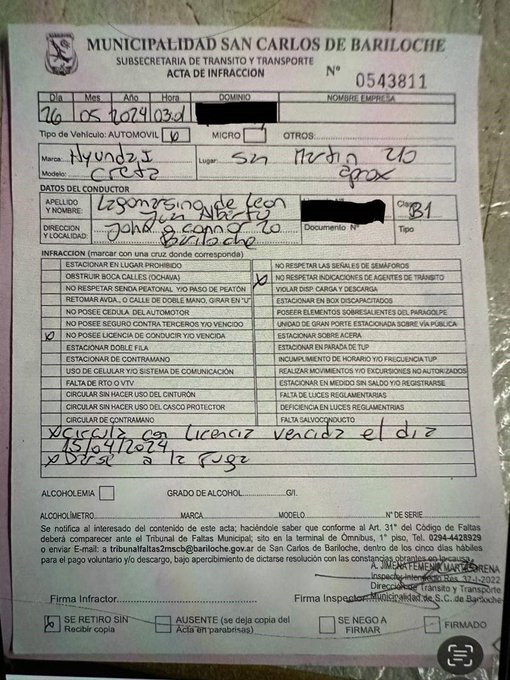 MUNICIPALIDAD SAN CARLOS DE BARILOCHE
SUBSECRETARIA DE TRANSITO Y TRANSPORTE
ACTA DE INFRACCION Nº 0543811
Día Mes Año Hora DOMINIO NOMBRE EMPRESA
26 05 2024
Tipo de Vehículo: AUTOMOVIL x MICRO OTROS:
Marca: Hyundai Lugar: San Martin 210
Modelo: Creta aprox
DATOS DEL CONDUCTOR
APELLIDO Y NOMBRE: Lagomasino de Leon
Juan Alberto
Documento Nº
Clase B1
Tipo
DIRECCION Y LOCALIDAD: John o connor 20
Bariloche
INFRACCION (marcar con una cruz donde corresponda)
ESTACIONAR EN LUGAR PROHIBIDO NO RESPETAR LAS SEÑALES DE SEMÁFOROS
OBSTRUIR BOCA CALLES (OCHAVA) x NO RESPETAR INDICACIONES DE AGENTES DE TRÁNSITO
NO RESPETAR SENDA PEATONAL Y/O PASO DE PEATÓN VIOLAR DISP. CARGA Y DESCARGA
RETOMAR AVDA., O CALLE DE DOBLE MANO, GIRAR EN "U" ESTACIONAR EN BOX DISCAPACITADOS
NO POSEE CEDULA DEL AUTOMOTOR POSEER ELEMENTOS SOBRESALIENTES DEL PARAGOLPE
NO POSEE SEGURO CONTRA TERCEROS Y/O VENCIDO UNIDAD DE GRAN PORTE ESTACIONADA SOBRE VÍA PÚBLICA
x NO POSEE LICENCIA DE CONDUCIR Y/O VENCIDA ESTACIONAR SOBRE ACERA
ESTACIONAR DOBLE FILA ESTACIONAR EN PARADA DE TUP
ESTACIONAR DE CONTRAMANO INCUMPLIMIENTO DE HORARIO Y/O FRECUENCIA TUP
USO DE CELULAR Y/O SISTEMA DE COMUNICACIÓN REALIZAR MOVIMIENTOS Y/O EXCURSIONES NO AUTORIZADOS
FALTA DE RTO O VTV ESTACIONAR EN MEDIDO SIN SALDO Y/O REGISTRARSE
CIRCULAR SIN HACER USO DEL CINTURÓN FALTA DE LUCES REGLAMENTARIAS
CIRCULAR SIN HACER USO DEL CASCO PROTECTOR DEFICIENCIA EN LUCES REGLAMENTRIAS
CIRCULAR DE CONTRAMANO FALTA SALVOCONDUCTO
x circula con Licencia vencida el dia
15/04/2024
x Darse a la fuga
ALCOHOLEMIA GRADO DE ALCOHOL G/l.
ALCOHOLÍMETRO MARCA MODELO Nº DE SERIE
Se notifica al interesado del contenido de este acta; haciéndole saber que conforme al Art. 31° del Código de Faltas
deberá comparecer ante el Tribunal de Faltas Municipal; sito en la terminal de Ómnibus, 1° piso, Tel. 0294-4428929
o enviar E-mail: a tribunalfaltas2mscb@bariloche.gov.ar de San Carlos de Bariloche, dentro de los cinco días hábiles
para el pago voluntario y/o descargo, bajo apercibimiento de dictarse resolución con las constancias obrantes en la causa
A. JIMENA FEMENIA
Inspector Res. 37-I-2022
Dirección de Tránsito y Transporte
Municipalidad de S.C. de Bariloche
Firma Infractor Firma Inspector
x SE RETIRO SIN Recibir copia AUSENTE (se deja copia del Acta en parabrisas) SE NEGO A FIRMAR FIRMADO